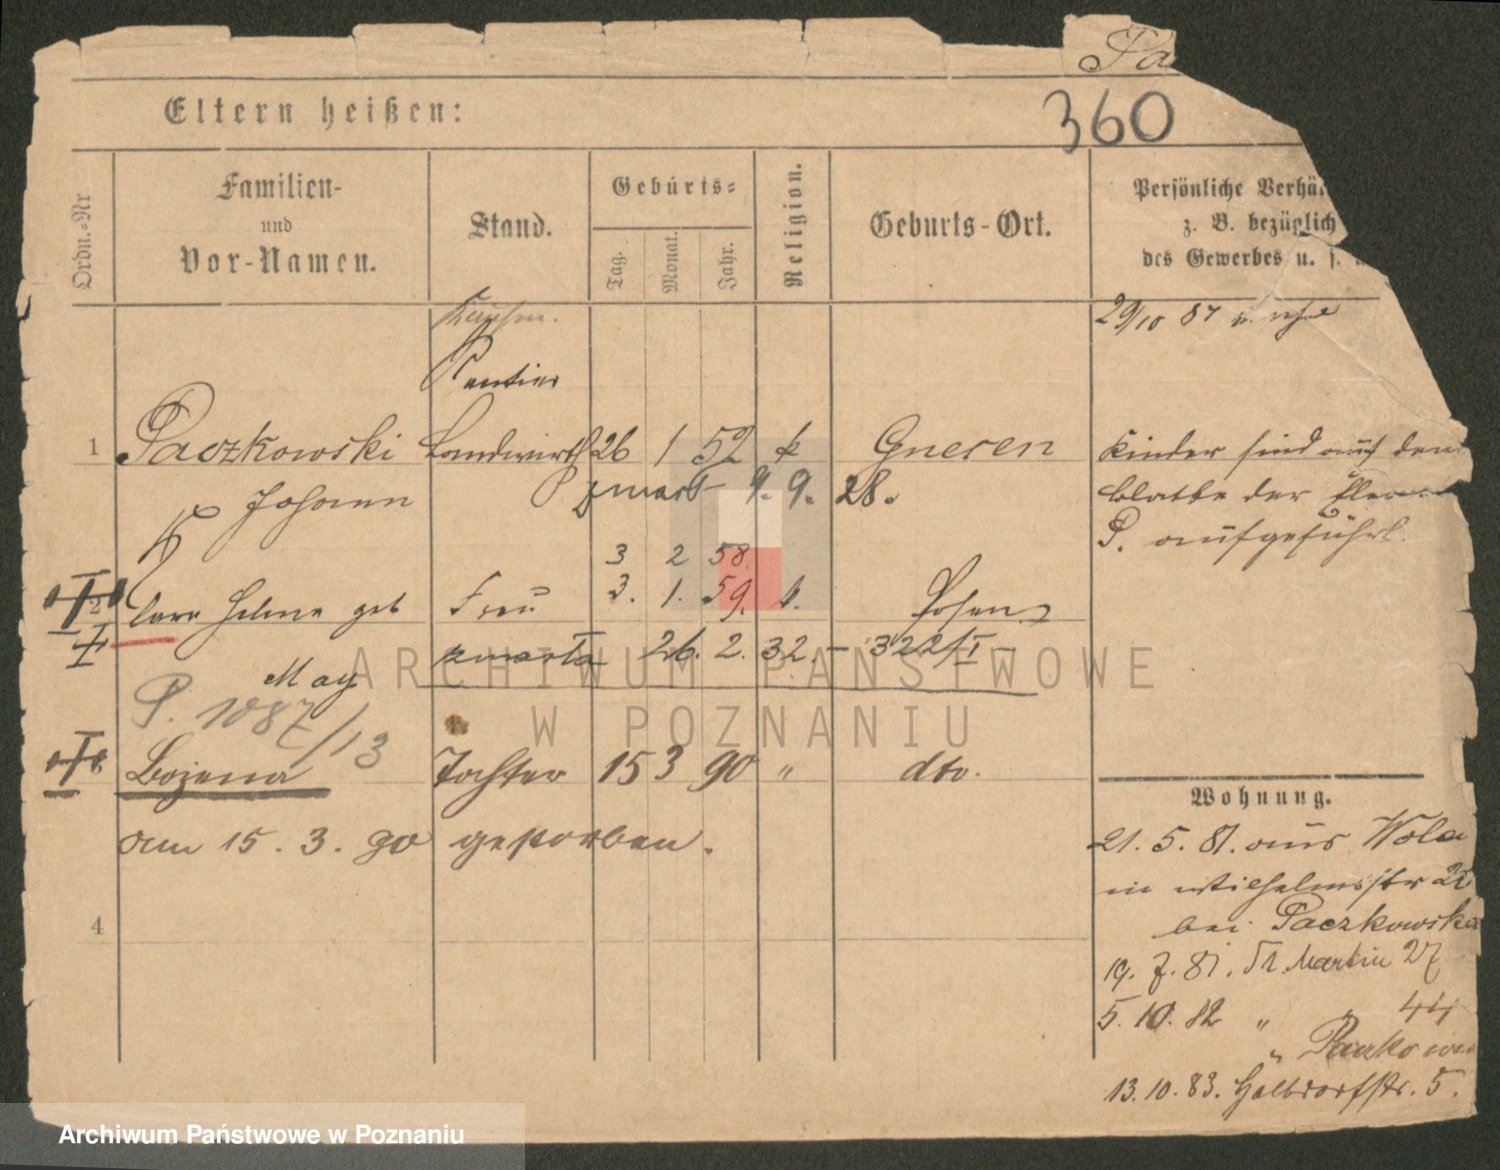 Pa
360
Eltern heißen:
Ordn.-Nr
Familien-
und
Vor-Namen.
Stand.
Geburts-
Tag.
Monat.
Jahr.
Religion.
Geburts-Ort.
Persönliche
z. B. bezüglich
des Gewerbes u. s.
29/10 87
Rentier
1 Paczkowski Landwirth 26 1 52 k Gnesen
Johann zmarł 9. 9. 28.
Kinder sind auf dem
Blatte der
P. aufgeführt.
3 2 58
2 geb Frau 3. 1. 59. k. Posen
zmarła 26. 2. 32. – 322/I –
May
P. 1087/13
Bożena Tochter 15 3 90 " dto.
am 15. 3. 90 gestorben.
4
Wohnung.
21. 5. 81. aus Wola
in Wilhelmsstr
bei Paczkowska
19. 7. 81. St. Martin 27
5. 10. 82 " " 44
"
13. 10. 83. Halbdorfstr. 5.
ARCHIWUM PAŃSTWOWE
W POZNANIU
Archiwum Państwowe w Poznaniu